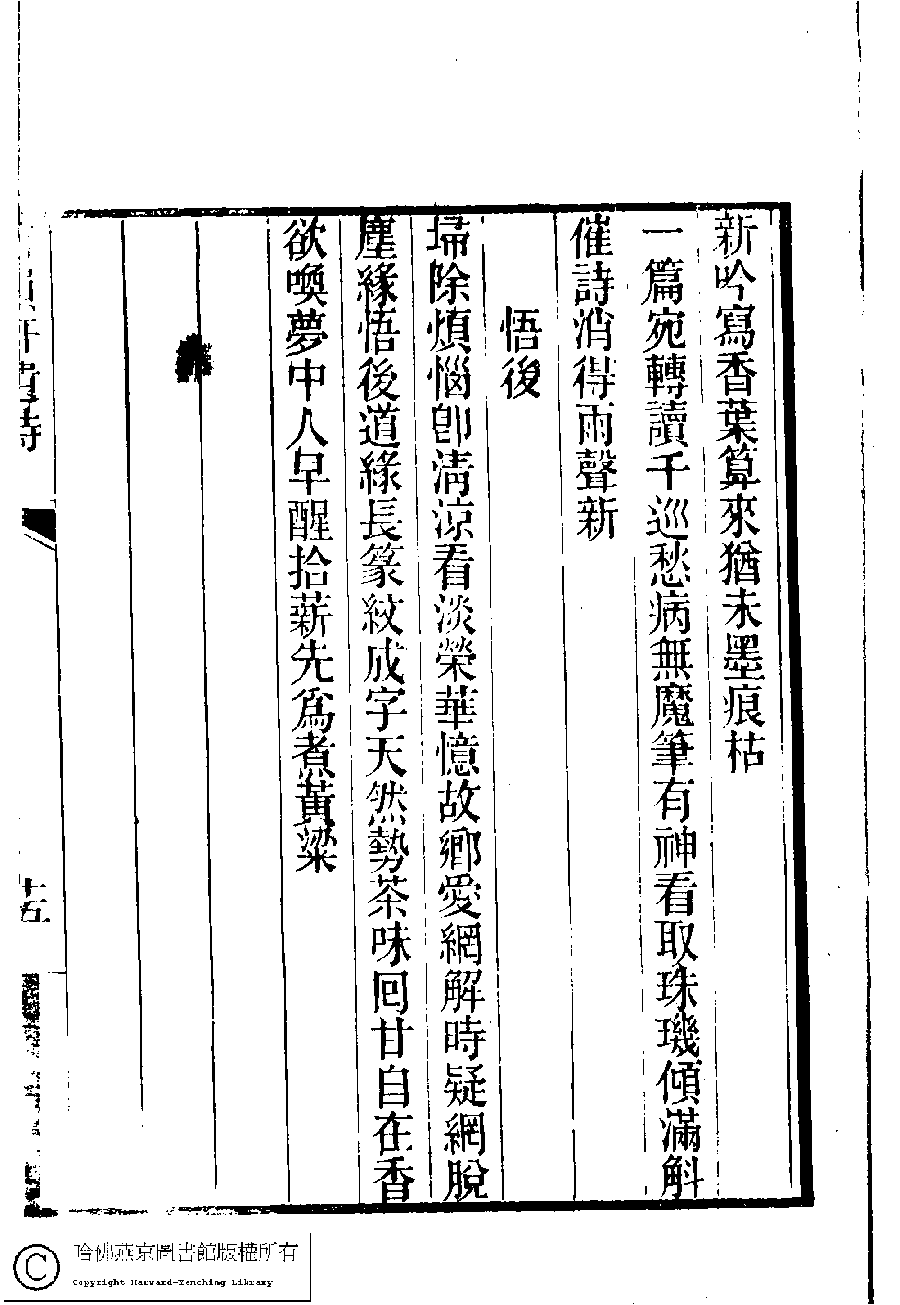 新吟寫香葉算來猶未墨痕枯
一篇宛轉讀千巡愁病無魔筆有神看取珠璣傾滿斛
催詩消得雨聲新
悟後
埽除煩惱卽淸涼看淡榮華憶故鄉愛網解時疑網脫
塵緣悟後道緣長篆紋成字天然勢茶味回甘自在香
欲喚夢中人早醒拾薪先爲煮黃粱
十五
哈佛燕京圖書館版權所有
Copyright Harvard-Yenching Library